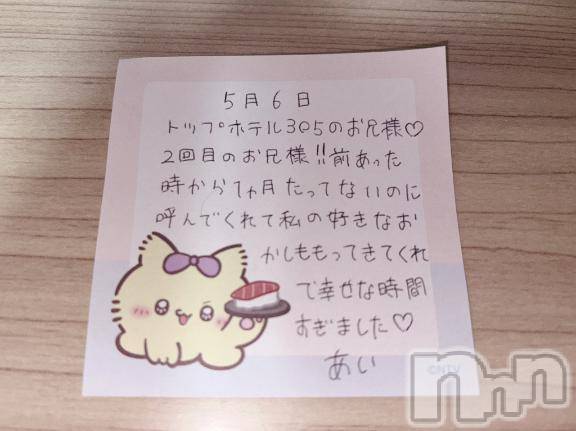 5月6日
トップホテル305のお兄様♡
2回目のお兄様!!前あった
時から1ヵ月たってないのに
呼んでくれて私の好きなお
かしももってきてくれ
て幸せな時間
すぎました♡
あい
©NTV
nnn